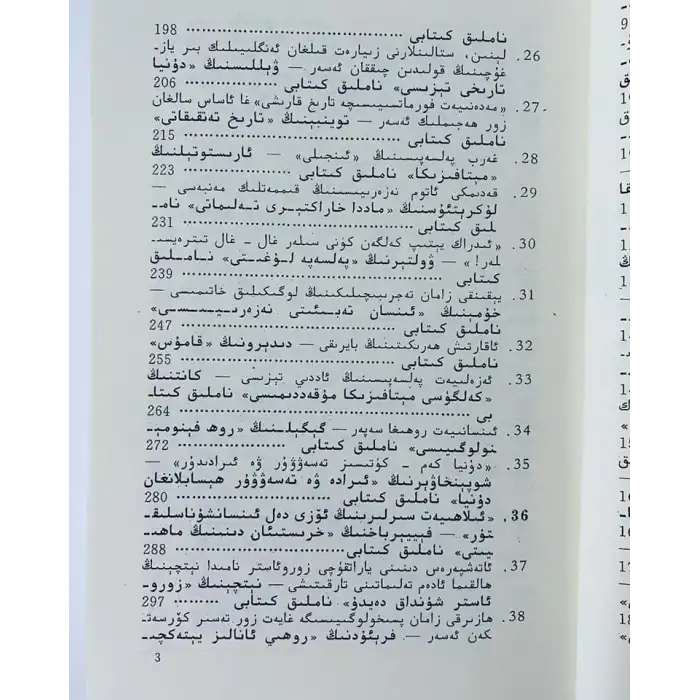 ناملىق كىتابى ······ 198
26. لېنىن، ستالىنلارنى زىيارەت قىلغان ئەنگلىيىلىك بىر ياز-
غۇچىنىڭ قولىدىن چىققان ئەسەر — ۋېللىسنىڭ «دۇنيا
تارىخى تېزىسى» ناملىق كىتابى ······ 206
27. «مەدەنىيەت فورماتسىيىسىچە تارىخ قارىشى»غا ئاساس سالغان
زور ھەجىملىك ئەسەر — توينىبىنىڭ «تارىخ تەتقىقاتى»
ناملىق كىتابى ······ 215
28. غەرب پەلسەپىسىنىڭ «ئىنجىلى» — ئارىستوتېلنىڭ
«مېتافىزىكا» ناملىق كىتابى ······ 223
29. قەدىمكى ئاتوم نەزەرىيىسىنىڭ قىممەتلىك مەنبەسى —
لۇكرېتئۇسنىڭ «ماددا خاراكتېرى تەلىماتى» نام-
لىق كىتابى ······ 231
30. «ئىدراك يېتىپ كەلگەن كۈنى سىلەر غال - غال تىترەيسىـ
لەر!» — ۋولتېرنىڭ «پەلسەپە لۇغىتى» ناملىق
كىتابى ······ 239
31. يېقىنقى زامان تەجرىبىچىلىكىنىڭ لوگىكىلىق خاتىمىسى —
خۇمېنىڭ «ئىنسان تەبىئىتى نەزەرىيىسى»
ناملىق كىتابى ······ 247
32. ئاقارتىش ھەرىكىتىنىڭ بايرىقى — دىدېرونىڭ «قامۇس»
ناملىق كىتابى ······ 255
33. ئەزەلىيەت پەلسەپىسىنىڭ ئاددىي تېزىسى — كانتنىڭ
«كەلگۈسى مېتافىزىكا مۇقەددىمىسى» ناملىق كىتا-
بى ······ 264
34. ئىنسانىيەت روھىغا سەپەر — گېگېلنىڭ «روھ فېنومې-
نولوگىيىسى» ناملىق كىتابى ······ 272
35. «دۇنيا كەم - كۈتىسىز تەسەۋۋۇر ۋە ئىرادىدۇر» —
شوپېنخاۋېرنىڭ «ئىرادە ۋە تەسەۋۋۇر ھېسابلانغان
دۇنيا» ناملىق كىتابى ······ 280
36. «ئىلاھىيەت سىرلىرىنىڭ ئۆزى دەل ئىنسانشۇناسلىق-
تۇر» — فېيېرباخنىڭ «خرىستىئان دىنىنىڭ ماھى-
يىتى» ناملىق كىتابى ······ 288
37. ئاتەشپەرەس دىنىنى ياراتقۇچى زوروئاستر نامىدا نېتچېنىڭ
ھالقىما ئادەم تەلىماتىنى تارقىتىشى — نېتچېنىڭ «زورو-
ئاستر شۇنداق دەيدۇ» ناملىق كىتابى ······ 297
38. ھازىرقى زامان پسىخولوگىيىسىگە غايەت زور تەسىر كۆرسەت-
كەن ئەسەر — فرېئۇدنىڭ «روھىي ئانالىز يېتەكچـ
3